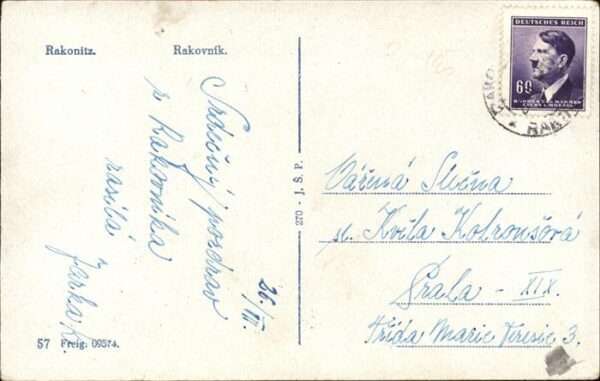 Rakonitz. Rakovník.
Srdečný pozdrav
z Rakovníka
zasílá
Jarka K.
26/III.
57 Freig. 09574.
270 - J. Š. P.
DEUTSCHES REICH
60
BÖHMEN UND MÄHREN
ČECHY A MORAVA
RAKO
RAKO
Vážená Slečna
sl. Květa
Praha - XIX.
Třída Marie Teresie 3.